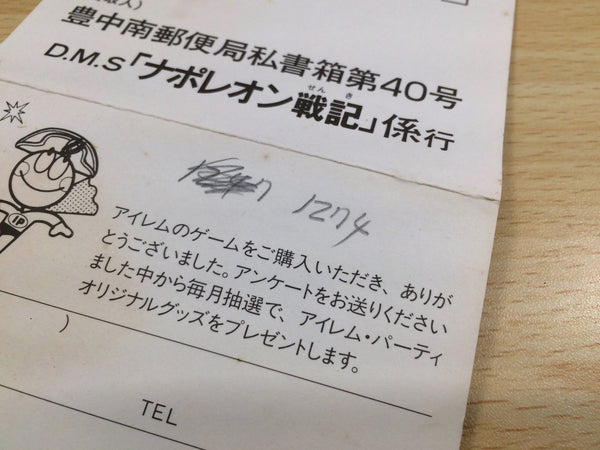 豊中南郵便局私書箱第40号
D.M.S「ナポレオン戦記」係行
せんき
1274
IP
アイレムのゲームをご購入いただき、ありが
とうございました。アンケートをお送りください
ました中から毎月抽選で、アイレム・パーティ
オリジナルグッズをプレゼントします。
)
TEL